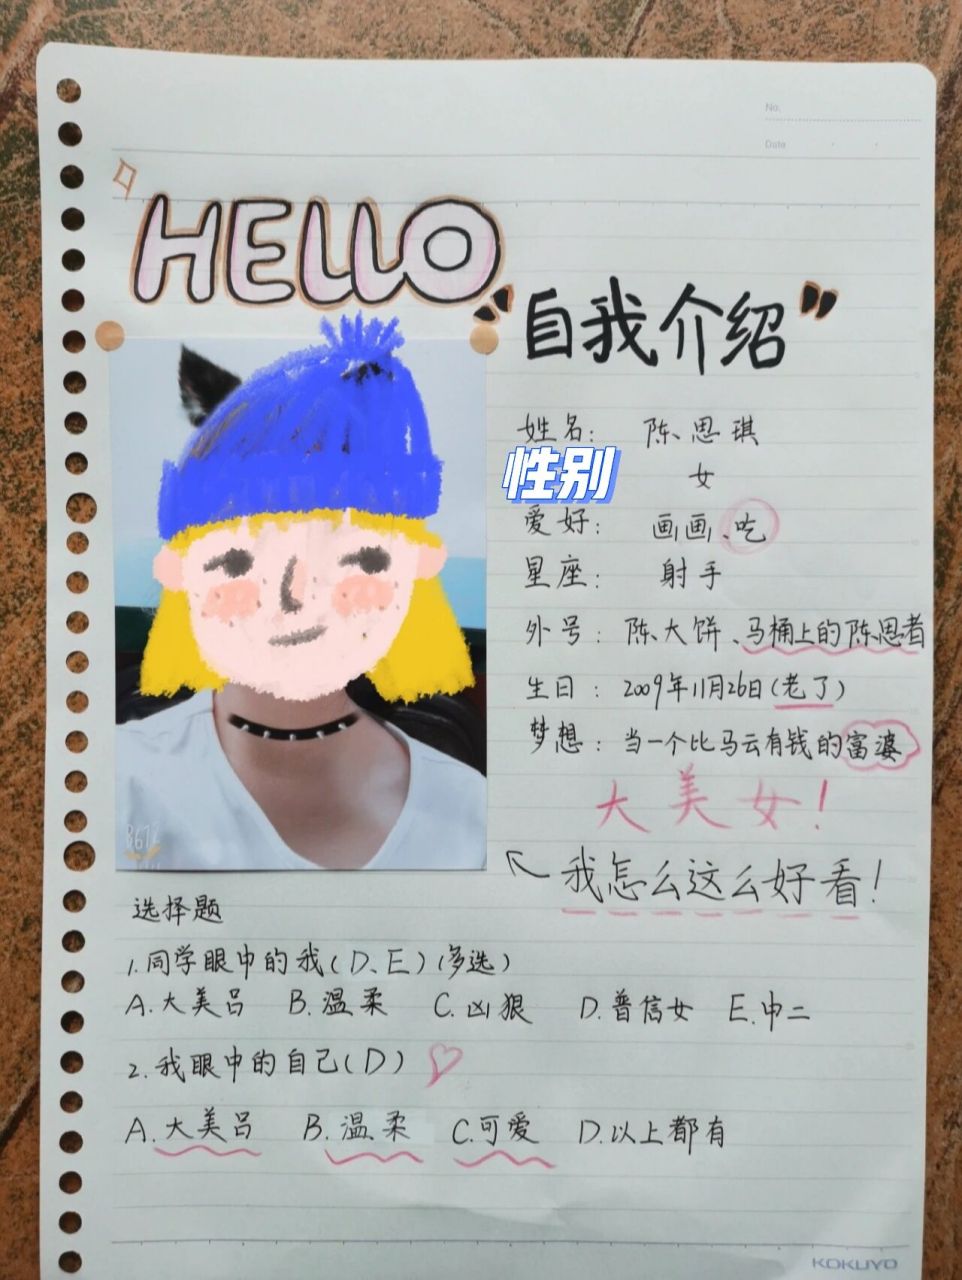 No.
Date
HELLO
"自我介绍"
姓名： 陈思琪
性别 女
爱好： 画画、吃
星座： 射手
外号： 陈大饼、马桶上的陈思者
生日： 2009年11月26日(老了)
梦想： 当一个比马云有钱的富婆
大美女！
我怎么这么好看！
选择题
1.同学眼中的我(D、E)(多选)
A.大美吕 B.温柔 C.凶狠 D.普信女 E.中二
2.我眼中的自己(D)
A.大美吕 B.温柔 C.可爱 D.以上都有
KOKUYO